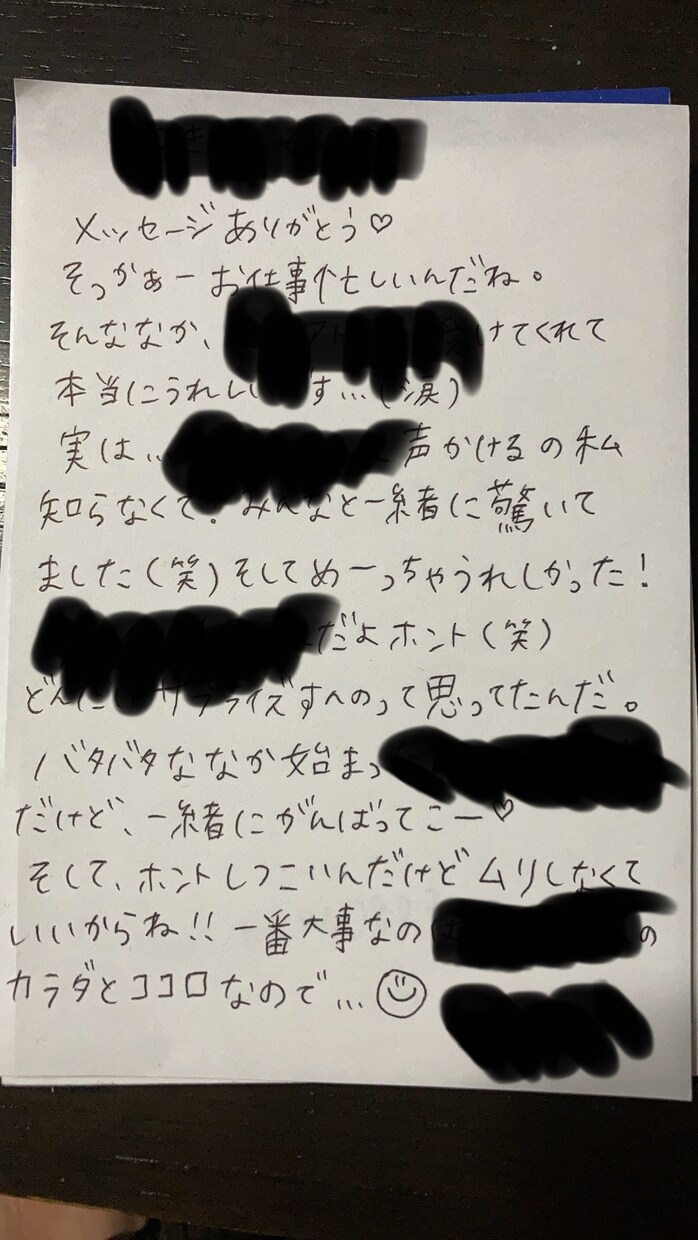 メッセージありがとう♡
そっかぁーお仕事忙しいんだね。
そんななか、けてくれて
本当にうれしいです…(涙)
実は…声かけるの私
知らなくて!みんなと一緒に驚いて
ました(笑)そしてめーっちゃうれしかった!
だよホント(笑)
サプライズすんのって思ってたんだ。
バタバタななか始まっ
だけど、一緒にがんばってこー♡
そして、ホントしつこいんだけどムリしなくて
いいからね!!一番大事なのは の
カラダとココロなので…☺